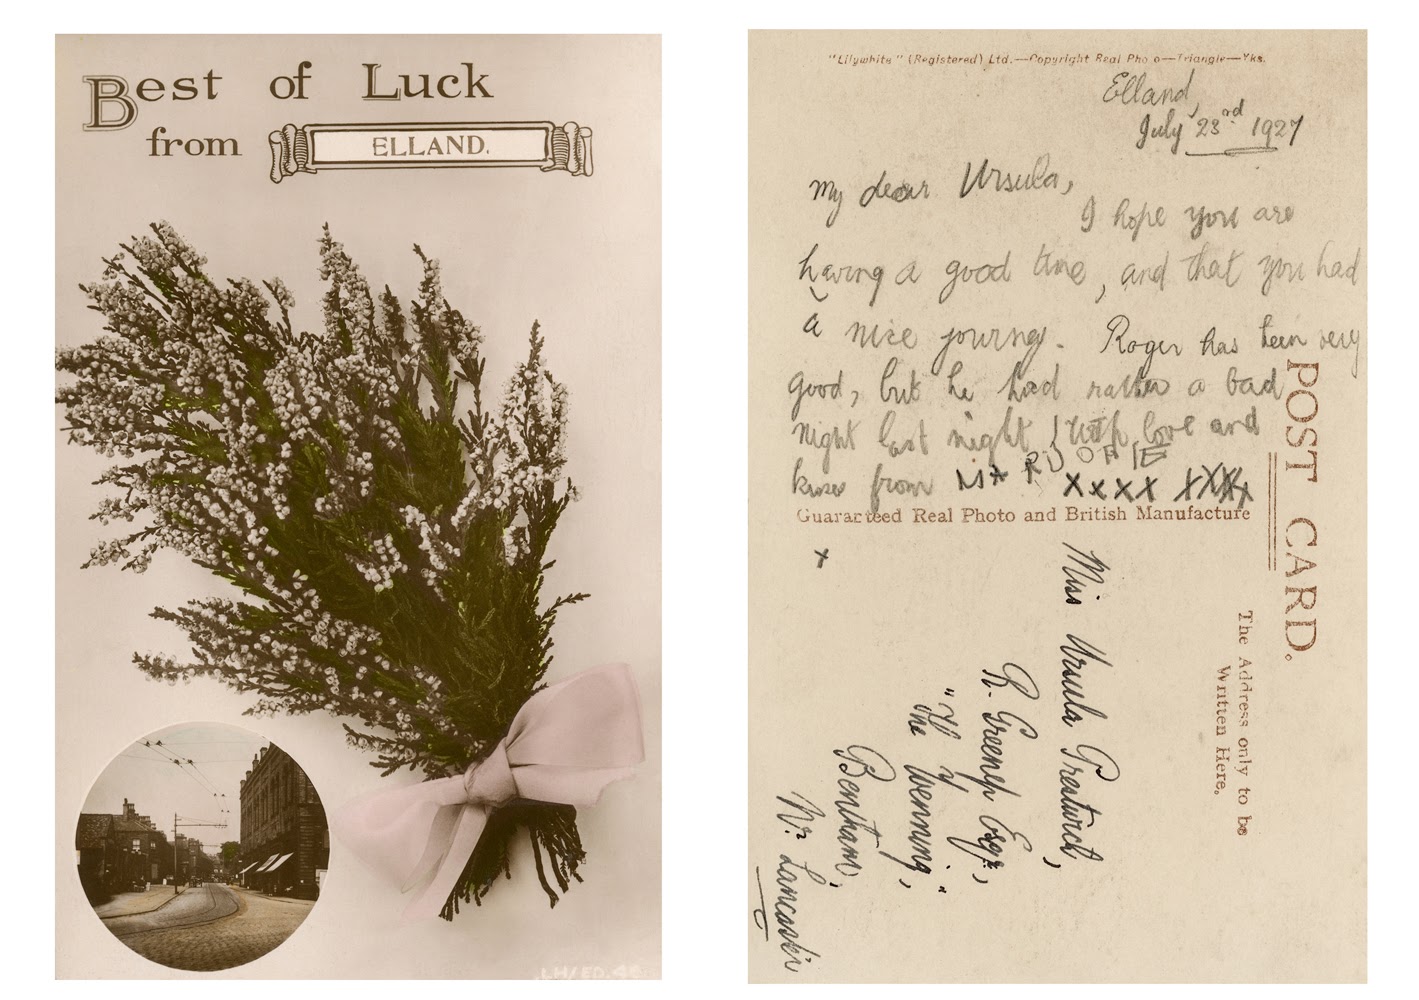 Best of Luck
from ELLAND.
LH/ED.
"Lilywhite" (Registered) Ltd.—Copyright Real Pho o—Triangle—Yks.
Elland,
July 23rd 1927
My dear Ursula,
I hope you are
having a good time, and that you had
a nice journy. Roger has been very
good, but he had rather a bad
night last night with love and
from
xxxx xxxx
Guaranteed Real Photo and British Manufacture
x
POST CARD.
The Address only to be
Written Here.
Miss Ursula
R. Greenep Esqr,
Wenning,"
Bentham,
Nr. Lancaster